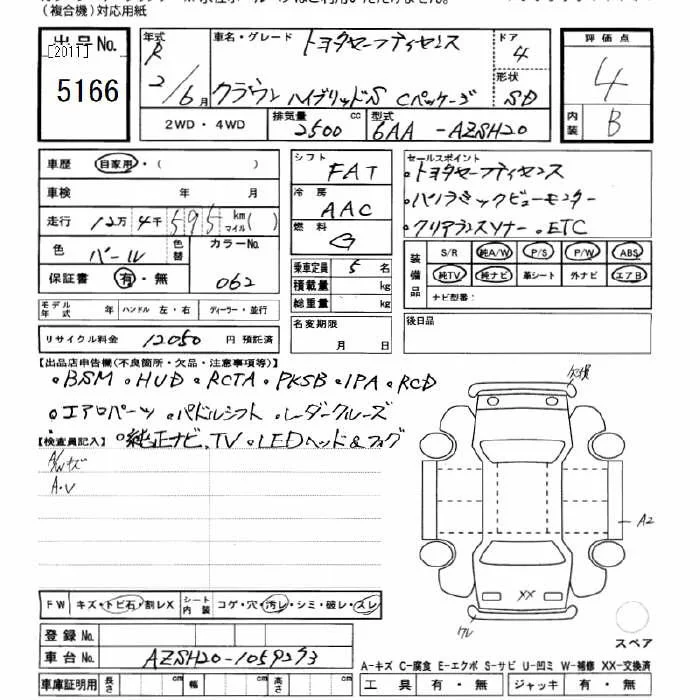 (複合機)対応用紙
出品No.
[2011]
5166
年式 R 2/6月
車名・グレード トヨタセーフティセンス
クラウン ハイブリッドS Cパッケージ
ドア 4
形状 SD
評価点 4
内装 B
2WD・4WD
排気量 2500 cc
型式 6AA -AZSH20
車歴 自家用・( )
車検 年 月
走行 12万 4千 595 km マイル( )
色 パール
色替
カラーNo. 062
保証書 有・無
シフト FAT
冷房 AAC
燃料 G
乗車定員 5 名
積載量 kg
総重量 kg
セールスポイント
・トヨタセーフティセンス
・パノラミックビューモニター
・クリアランスソナー 。ETC
装備品
S/R 純A/W P/S P/W ABS
純TV 純ナビ 革シート 外ナビ エアB
ナビ型番:
モデル年式 年 ハンドル 左・右 ディーラー・並行
リサイクル料金 12050 円 預託済
名変期限 月 日
後日品
【出品店申告欄(不良箇所・欠品・注意事項等)】
。BSM 。HUD 。RCTA 。PKSB 。IPA 。RCD
。エアロパーツ 。パドルシフト 。レーダークルーズ
【検査員記入】 。純正ナビ、TV 。LEDヘッド&フォグ
A/Wキズ
A・U
欠損
A2
XX
ワレ
FW キズ・トビ石・割レX シート内装 コゲ・穴・汚レ・シミ・破レ・スレ
登録No.
車台No. AZSH20-1059293
スペア
A-キズ C-腐食 E-エクボ S-サビ U-凹ミ W-補修 XX-交換済
車庫証明用 長さ cm 幅 cm 高さ cm
工具 有・無 ジャッキ 有・無